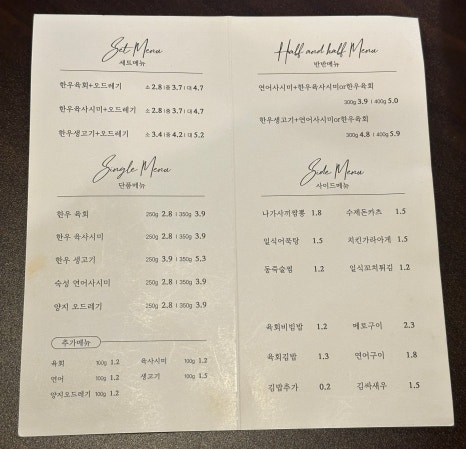 Set Menu
세트메뉴
한우육회+오드레기 소 2.8 | 중 3.7 | 대 4.7
한우육사시미+오드레기 소 2.8 | 중 3.7 | 대 4.7
한우생고기+오드레기 소 3.4 | 중 4.2 | 대 5.2
Single Menu
단품메뉴
한우 육회 250g 2.8 | 350g 3.9
한우 육사시미 250g 2.8 | 350g 3.9
한우 생고기 250g 3.9 | 350g 5.3
숙성 연어사시미 250g 2.8 | 350g 3.9
양지 오드레기 250g 2.8 | 350g 3.9
추가메뉴
육회 100g 1.2 육사시미 100g 1.2
연어 100g 1.2 생고기 100g 1.5
양지오드레기 100g 1.2
Half and half Menu
반반메뉴
연어사시미+한우육사시미or한우육회
300g 3.9 | 400g 5.0
한우생고기+연어사시미or한우육회
300g 4.8 | 400g 5.9
Side Menu
사이드메뉴
나가사끼짬뽕 1.8 수제돈카츠 1.5
일식어묵탕 1.5 치킨가라아게 1.5
동죽술찜 1.2 일식꼬치튀김 1.2
육회비빔밥 1.2 메로구이 2.3
육회김밥 1.3 연어구이 1.8
김밥추가 0.2 김싸새우 1.5